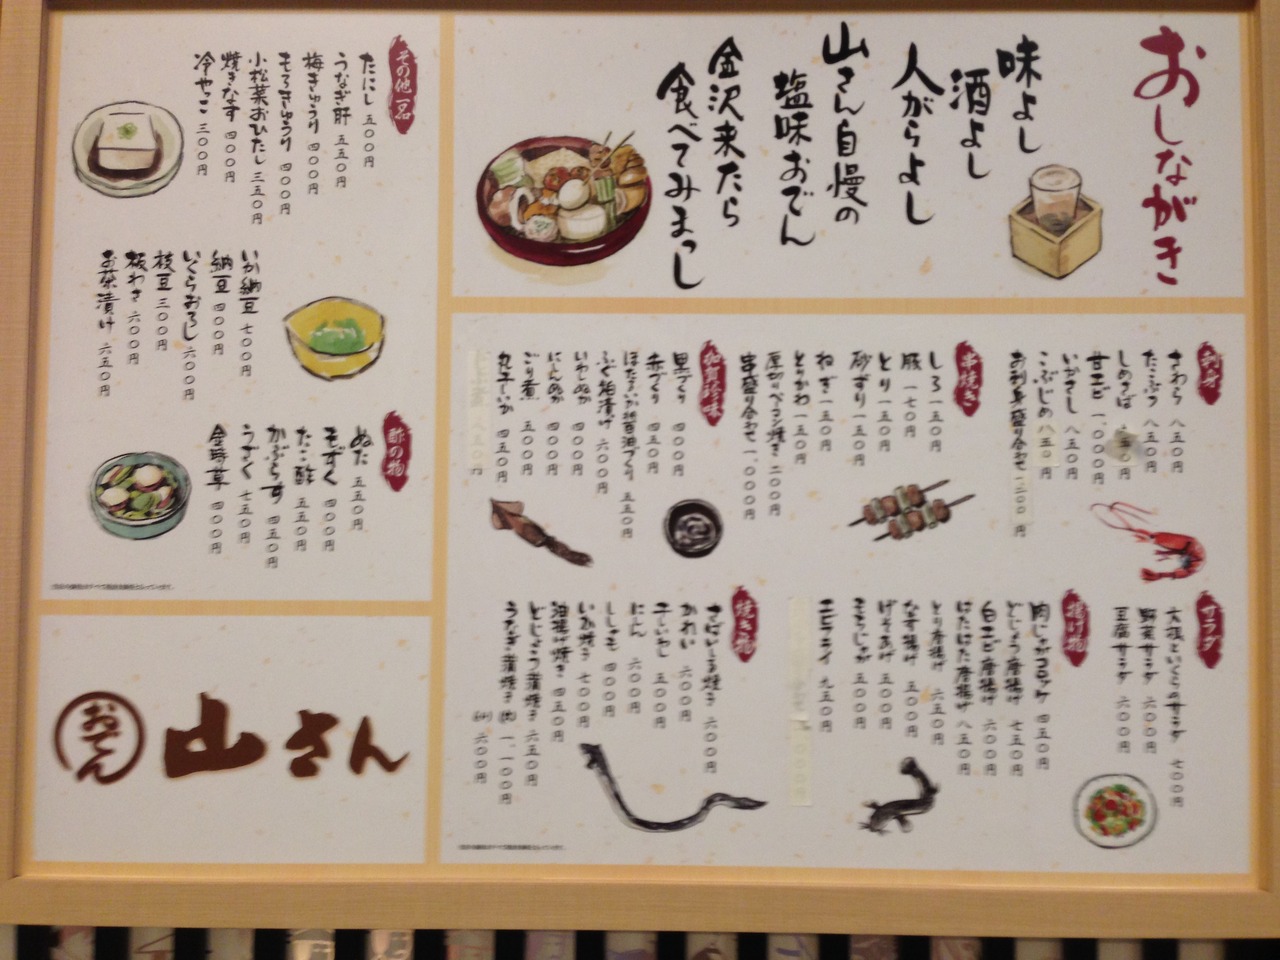 おしながき
味よし
酒よし
人がらよし
山さん自慢の
塩味おでん
金沢来たら
食べてみまっし
刺身
さわら 八五〇円
たこぶつ 八五〇円
しめさば
甘エビ 一、〇〇〇円
いかさし 八五〇円
こぶじめ 八五〇円
お刺身盛り合わせ 一二〇〇円
串焼き
しろ 一五〇円
豚 一七〇円
とり 一五〇円
砂ずり 一五〇円
ねぎ 一五〇円
とりかわ 一五〇円
厚切りベーコン焼き 二〇〇円
串盛り合わせ 一、〇〇〇円
加賀珍味
黒づくり 四〇〇円
赤づくり 四五〇円
ほたるいか醤油づくり 五五〇円
ふぐ粕漬け 六〇〇円
いわしぬか 四〇〇円
にしんぬか 四〇〇円
ごり煮 五〇〇円
丸干しいか 四五〇円
サラダ
大根といくらのサラダ 七〇〇円
野菜サラダ 六〇〇円
豆腐サラダ 六〇〇円
揚げ物
肉じゃがコロッケ 四五〇円
どじょう唐揚げ 七五〇円
白エビ唐揚げ 六〇〇円
はたはた唐揚げ 八五〇円
とり唐揚げ 六五〇円
なす揚げ 五〇〇円
げそあげ 五〇〇円
そろじゃが 五〇〇円
エビフライ 九五〇円
焼き物
さばいしる焼き 六〇〇円
かれい 六〇〇円
干しいわし 五〇〇円
にしん 六〇〇円
ししゃも 四〇〇円
いか焼き 七〇〇円
油揚げ焼き 四五〇円
どじょう蒲焼き 六五〇円
うなぎ蒲焼き (大) 一、一〇〇円
(小) 六〇〇円
その他一品
たにし 五〇〇円
うなぎ肝 五五〇円
梅きゅうり 四〇〇円
もろきゅうり 四〇〇円
小松菜おひたし 三五〇円
焼きなす 四〇〇円
冷やっこ 三〇〇円
いか納豆 七〇〇円
納豆 四〇〇円
いくらおろし 六〇〇円
枝豆 三〇〇円
板わさ 六〇〇円
お茶漬け 六五〇円
酢の物
ぬた 五五〇円
もずく 四〇〇円
たこ酢 五五〇円
かぶらす 四五〇円
うざく 七五〇円
金時草 四〇〇円
おでん
山さん